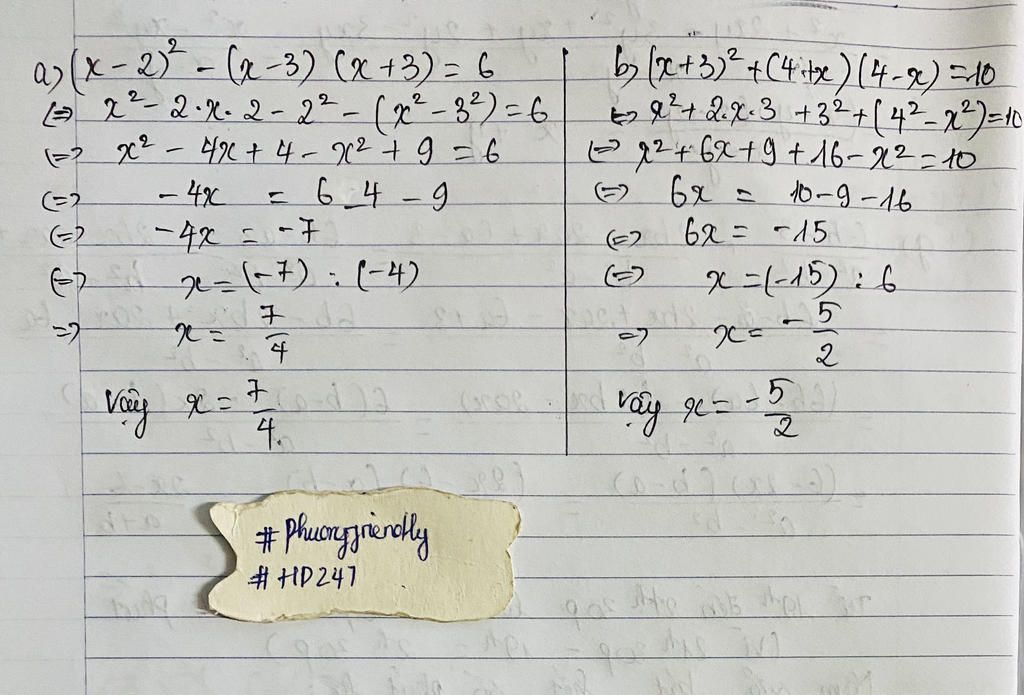 a) (x - 2)² - (x - 3) (x + 3) = 6
(=) x² - 2.x.2 - 2² - (x² - 3²) = 6
(=) x² - 4x + 4 - x² + 9 = 6
(=) - 4x = 6 - 4 - 9
(=) - 4x = - 7
(=) x = (-7) : (-4)
=) x = 7/4
Vậy x = 7/4.
b) (x+3)² + (4+x) (4-x) = 10
(=) x² + 2.x.3 + 3² + (4² - x²) = 10
(=) x² + 6x + 9 + 16 - x² = 10
(=) 6x = 10 - 9 - 16
(=) 6x = -15
(=) x = (-15) : 6
=) x = - 5/2
Vậy x = - 5/2
# Phuongfriendly
# HD247